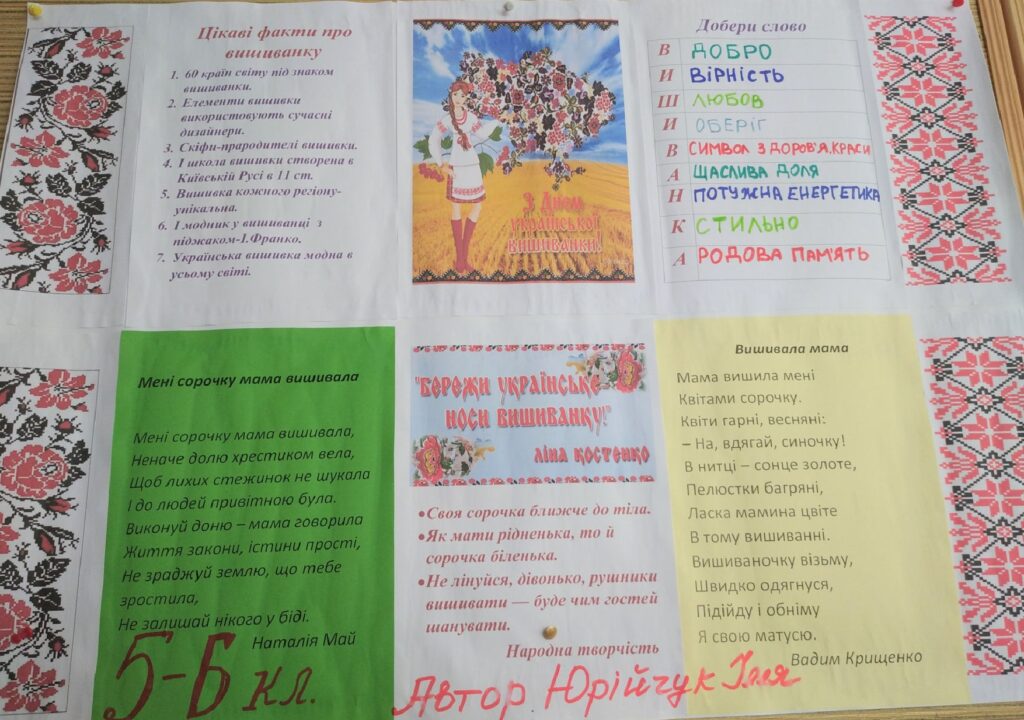 Цікаві факти про
вишиванку
1. 60 країн світу під знаком
вишиванки.
2. Елементи вишивки
використовують сучасні
дизайнери.
3. Скіфи-прародителі вишивки.
4. І школа вишивки створена в
Київській Русі в 11 ст.
5. Вишивка кожного регіону-
унікальна.
6. І модник у вишиванці з
піджаком-І.Франко.
7. Українська вишивка модна в
усьому світі.
З Днем
української
вишиванки!
Добери слово
В ДОБРО
И ВІРНІСТЬ
Ш ЛЮБОВ
И ОБЕРІГ
В СИМВОЛ ЗДОРОВ'Я,КРАСИ
А ЩАСЛИВА ДОЛЯ
Н ПОТУЖНА ЕНЕРГЕТИКА
К СТИЛЬНО
А РОДОВА ПАМ'ЯТЬ
Мені сорочку мама вишивала
Мені сорочку мама вишивала,
Неначе долю хрестиком вела,
Щоб лихих стежинок не шукала
І до людей привітною була.
Виконуй доню – мама говорила
Життя закони, істини прості,
Не зраджуй землю, що тебе
зростила,
Не залишай нікого у біді.
Наталія Май
5-Б кл.
"БЕРЕЖИ УКРАЇНСЬКЕ
НОСИ ВИШИВАНКУ!"
ЛІНА КОСТЕНКО
•Своя сорочка ближче до тіла.
•Як мати рідненька, то й
сорочка біленька.
•Не лінуйся, дівонько, рушники
вишивати — буде чим гостей
шанувати.
Народна творчість
Автор Юрійчук Ілля
Вишивала мама
Мама вишила мені
Квітами сорочку.
Квіти гарні, весняні:
– На, вдягай, синочку!
В нитці – сонце золоте,
Пелюстки багряні,
Ласка мамина цвіте
В тому вишиванні.
Вишиваночку візьму,
Швидко одягнуся,
Підійду і обніму
Я свою матусю.
Вадим Крищенко